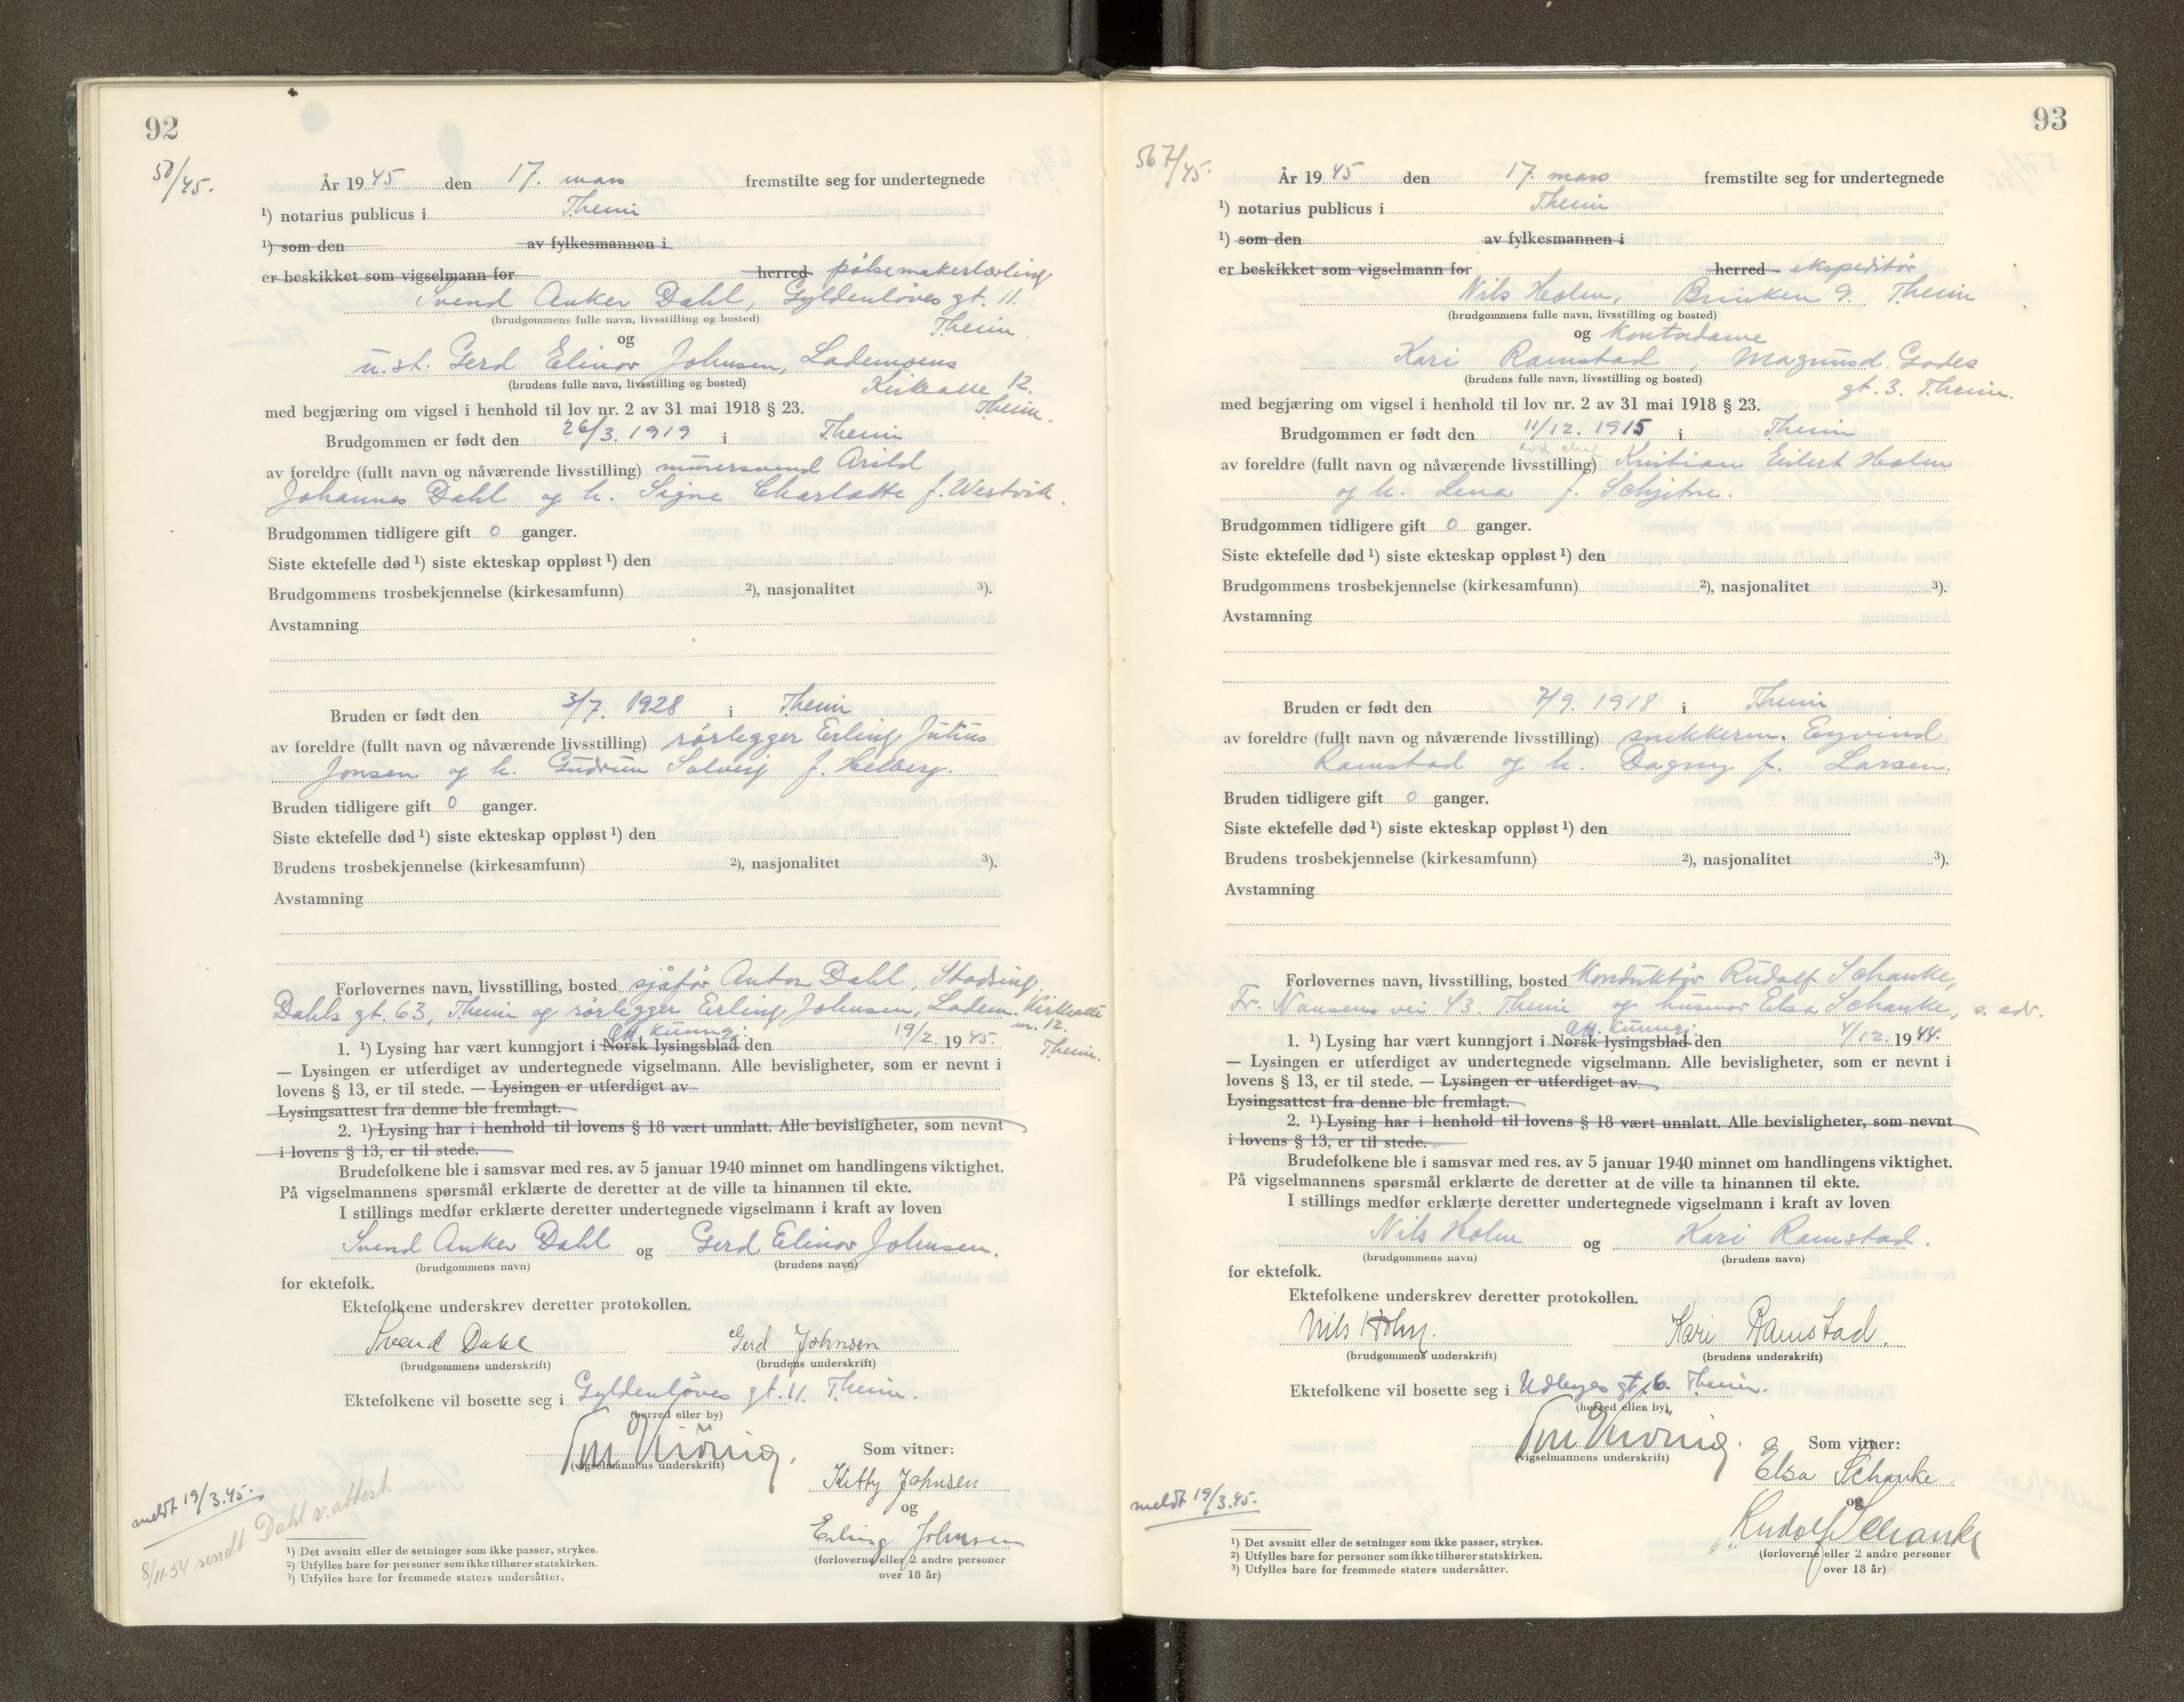 92
50/45.
År 1945 den 17. mars fremstilte seg for undertegnede
¹) notarius publicus i Thеim
¹) som den av fylkesmannen i
er beskikket som vigselmann for herred pølsemakerlærling
Svend Anker Dahl, Gyldenløves gt. 11.
(brudgommens fulle navn, livsstilling og bosted) Theim.
og
u.st. Gerd Elinor Johnsen, Lademoens
(brudens fulle navn, livsstilling og bosted) Kirkealle 12.
med begjæring om vigsel i henhold til lov nr. 2 av 31 mai 1918 § 23. Theim.
Brudgommen er født den 26/3. 1919 i Theim
av foreldre (fullt navn og nåværende livsstilling) murersvend Arild
Johannes Dahl og h. Signe Charlotte f. Westvik.
Brudgommen tidligere gift 0 ganger.
Siste ektefelle død ¹) siste ekteskap oppløst ¹) den
Brudgommens trosbekjennelse (kirkesamfunn) ²), nasjonalitet ³).
Avstamning
Bruden er født den 3/7. 1928 i Theim
av foreldre (fullt navn og nåværende livsstilling) rørlegger Erling Julius
Jonsen og h. Gudrun Solveig f. Helberg.
Bruden tidligere gift 0 ganger.
Siste ektefelle død ¹) siste ekteskap oppløst ¹) den
Brudens trosbekjennelse (kirkesamfunn) ²), nasjonalitet ³).
Avstamning
Forlovernes navn, livsstilling, bosted sjåfør Anton Dahl, Stadsing.
Dahls gt. 63, Theim og rørlegger Erling Johnsen, Ladem. Kirkealle
Off. kunngj. m. 12.
1. ¹) Lysing har vært kunngjort i Norsk lysingsblad den 19/2. 1945. Theim.
— Lysingen er utferdiget av undertegnede vigselmann. Alle bevisligheter, som er nevnt i
lovens § 13, er til stede. — Lysingen er utferdiget av
Lysingsattest fra denne ble fremlagt.
2. ¹) Lysing har i henhold til lovens § 18 vært unnlatt. Alle bevisligheter, som nevnt
i lovens § 13, er til stede.
Brudefolkene ble i samsvar med res. av 5 januar 1940 minnet om handlingens viktighet.
På vigselmannens spørsmål erklærte de deretter at de ville ta hinannen til ekte.
I stillings medfør erklærte deretter undertegnede vigselmann i kraft av loven
Svend Anker Dahl og Gerd Elinor Johnsen.
(brudgommens navn) (brudens navn)
for ektefolk.
Ektefolkene underskrev deretter protokollen.
Svend Dahl Gerd Johnsen
(brudgommens underskrift) (brudens underskrift)
Ektefolkene vil bosette seg i Gyldenløves gt. 11. Theim.
(herred eller by)
Som vitner:
(vigselmannens underskrift)
Kitty Johnsen
og
Erling Johnsen
(forloverne eller 2 andre personer
over 18 år)
meldt 19/3.45.
8/11.54 sendt Dahl v.attest
¹) Det avsnitt eller de setninger som ikke passer, strykes.
²) Utfylles bare for personer som ikke tilhører statskirken.
³) Utfylles bare for fremmede staters undersåtter.
93
567/45.
År 1945 den 17. mars fremstilte seg for undertegnede
¹) notarius publicus i Theim
¹) som den av fylkesmannen i
er beskikket som vigselmann for herred ekspeditør
Nils Holm, Brinken 9. Theim
(brudgommens fulle navn, livsstilling og bosted)
og Kontordame
Kari Ramstad, Magnus d. Godes
(brudens fulle navn, livsstilling og bosted) gt. 3. Theim.
med begjæring om vigsel i henhold til lov nr. 2 av 31 mai 1918 § 23.
Brudgommen er født den 11/12. 1915 i Theim
av foreldre (fullt navn og nåværende livsstilling) Kristian Eilert Holm
og h. Lena f. Schjitne.
Brudgommen tidligere gift 0 ganger.
Siste ektefelle død ¹) siste ekteskap oppløst ¹) den
Brudgommens trosbekjennelse (kirkesamfunn) ²), nasjonalitet ³).
Avstamning
Bruden er født den 7/9. 1918 i Theim
av foreldre (fullt navn og nåværende livsstilling) snekkerm. Eyvind
Ramstad og h. Dagny f. Larsen.
Bruden tidligere gift 0 ganger.
Siste ektefelle død ¹) siste ekteskap oppløst ¹) den
Brudens trosbekjennelse (kirkesamfunn) ²), nasjonalitet ³).
Avstamning
Forlovernes navn, livsstilling, bosted Konduktør Rudolf Schanke,
Fr. Nansens vei 43. Theim og husmor Elsa Schanke, s. adr.
Off. kunngj.
1. ¹) Lysing har vært kunngjort i Norsk lysingsblad den 4/12. 1944.
— Lysingen er utferdiget av undertegnede vigselmann. Alle bevisligheter, som er nevnt i
lovens § 13, er til stede. — Lysingen er utferdiget av
Lysingsattest fra denne ble fremlagt.
2. ¹) Lysing har i henhold til lovens § 18 vært unnlatt. Alle bevisligheter, som nevnt
i lovens § 13, er til stede.
Brudefolkene ble i samsvar med res. av 5 januar 1940 minnet om handlingens viktighet.
På vigselmannens spørsmål erklærte de deretter at de ville ta hinannen til ekte.
I stillings medfør erklærte deretter undertegnede vigselmann i kraft av loven
Nils Holm og Kari Ramstad.
(brudgommens navn) (brudens navn)
for ektefolk.
Ektefolkene underskrev deretter protokollen.
Nils Holm. Kari Ramstad.
(brudgommens underskrift) (brudens underskrift)
Ektefolkene vil bosette seg i Udbyes gt. 6. Theim.
(herred eller by)
Som vitner:
(vigselmannens underskrift)
Elsa Schanke.
og
Rudolf Schanke
(forloverne eller 2 andre personer
over 18 år)
meldt 19/3.45.
¹) Det avsnitt eller de setninger som ikke passer, strykes.
²) Utfylles bare for personer som ikke tilhører statskirken.
³) Utfylles bare for fremmede staters undersåtter.